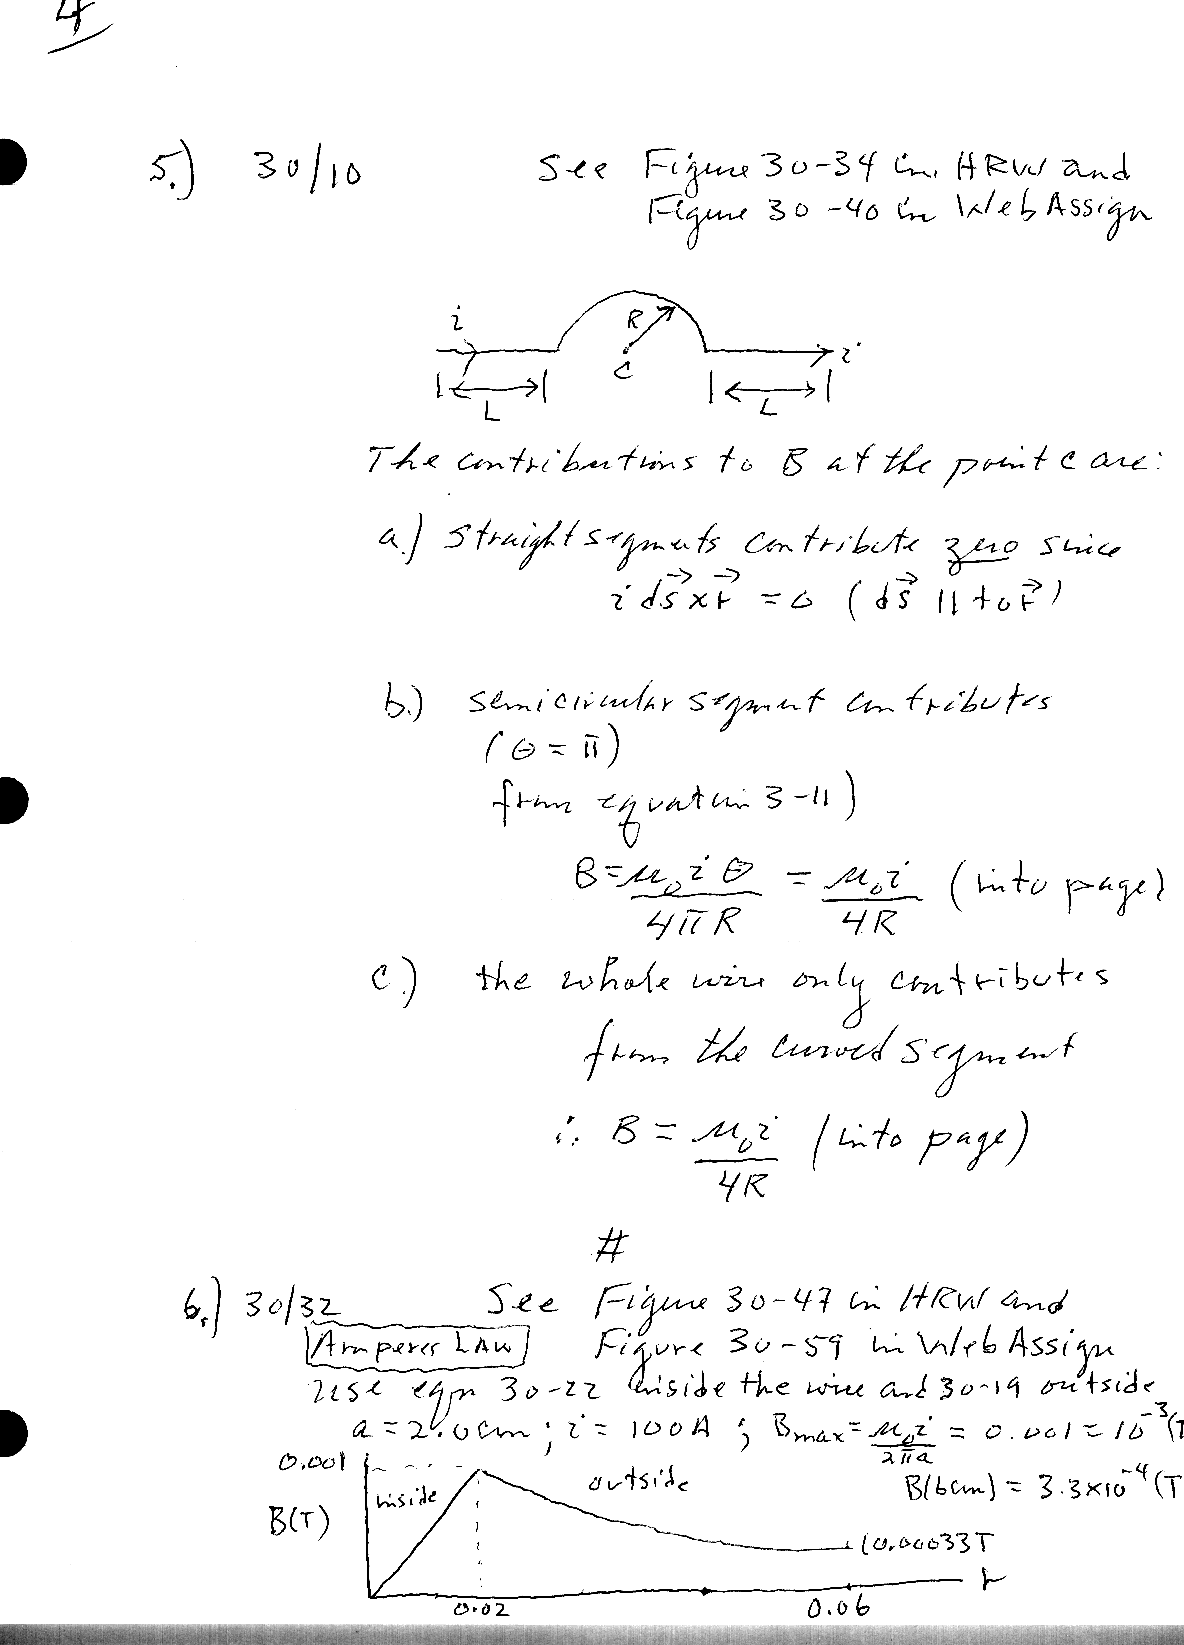 4
5.) 30/10 See Figure 30-34 in HRW and
Figure 30-40 in WebAssign
i R C i
L L
The contributions to B at the point C are:
a.) Straight segments contribute zero since
i ds⃗ x r⃗ = 0 (ds⃗ || to r⃗)
b.) semicircular segment contributes
(θ = π)
from equation 3-11)
B = μ₀iθ/4πR = μ₀i/4R (into page)
c.) the whole wire only contributes
from the curved segment
∴ B = μ₀i/4R (into page)
#
6.) 30/32 See Figure 30-47 in HRW and
Amperes LAW Figure 30-59 in WebAssign
Use eqn 30-22 inside the wire and 30-19 outside
a = 2.0cm; i = 100A; Bmax = μ₀i/2πa = 0.001 = 10⁻³(T
B(6cm) = 3.3x10⁻⁴(T
0.001
inside outside
B(T)
(0.00033T
r
0.02 0.06